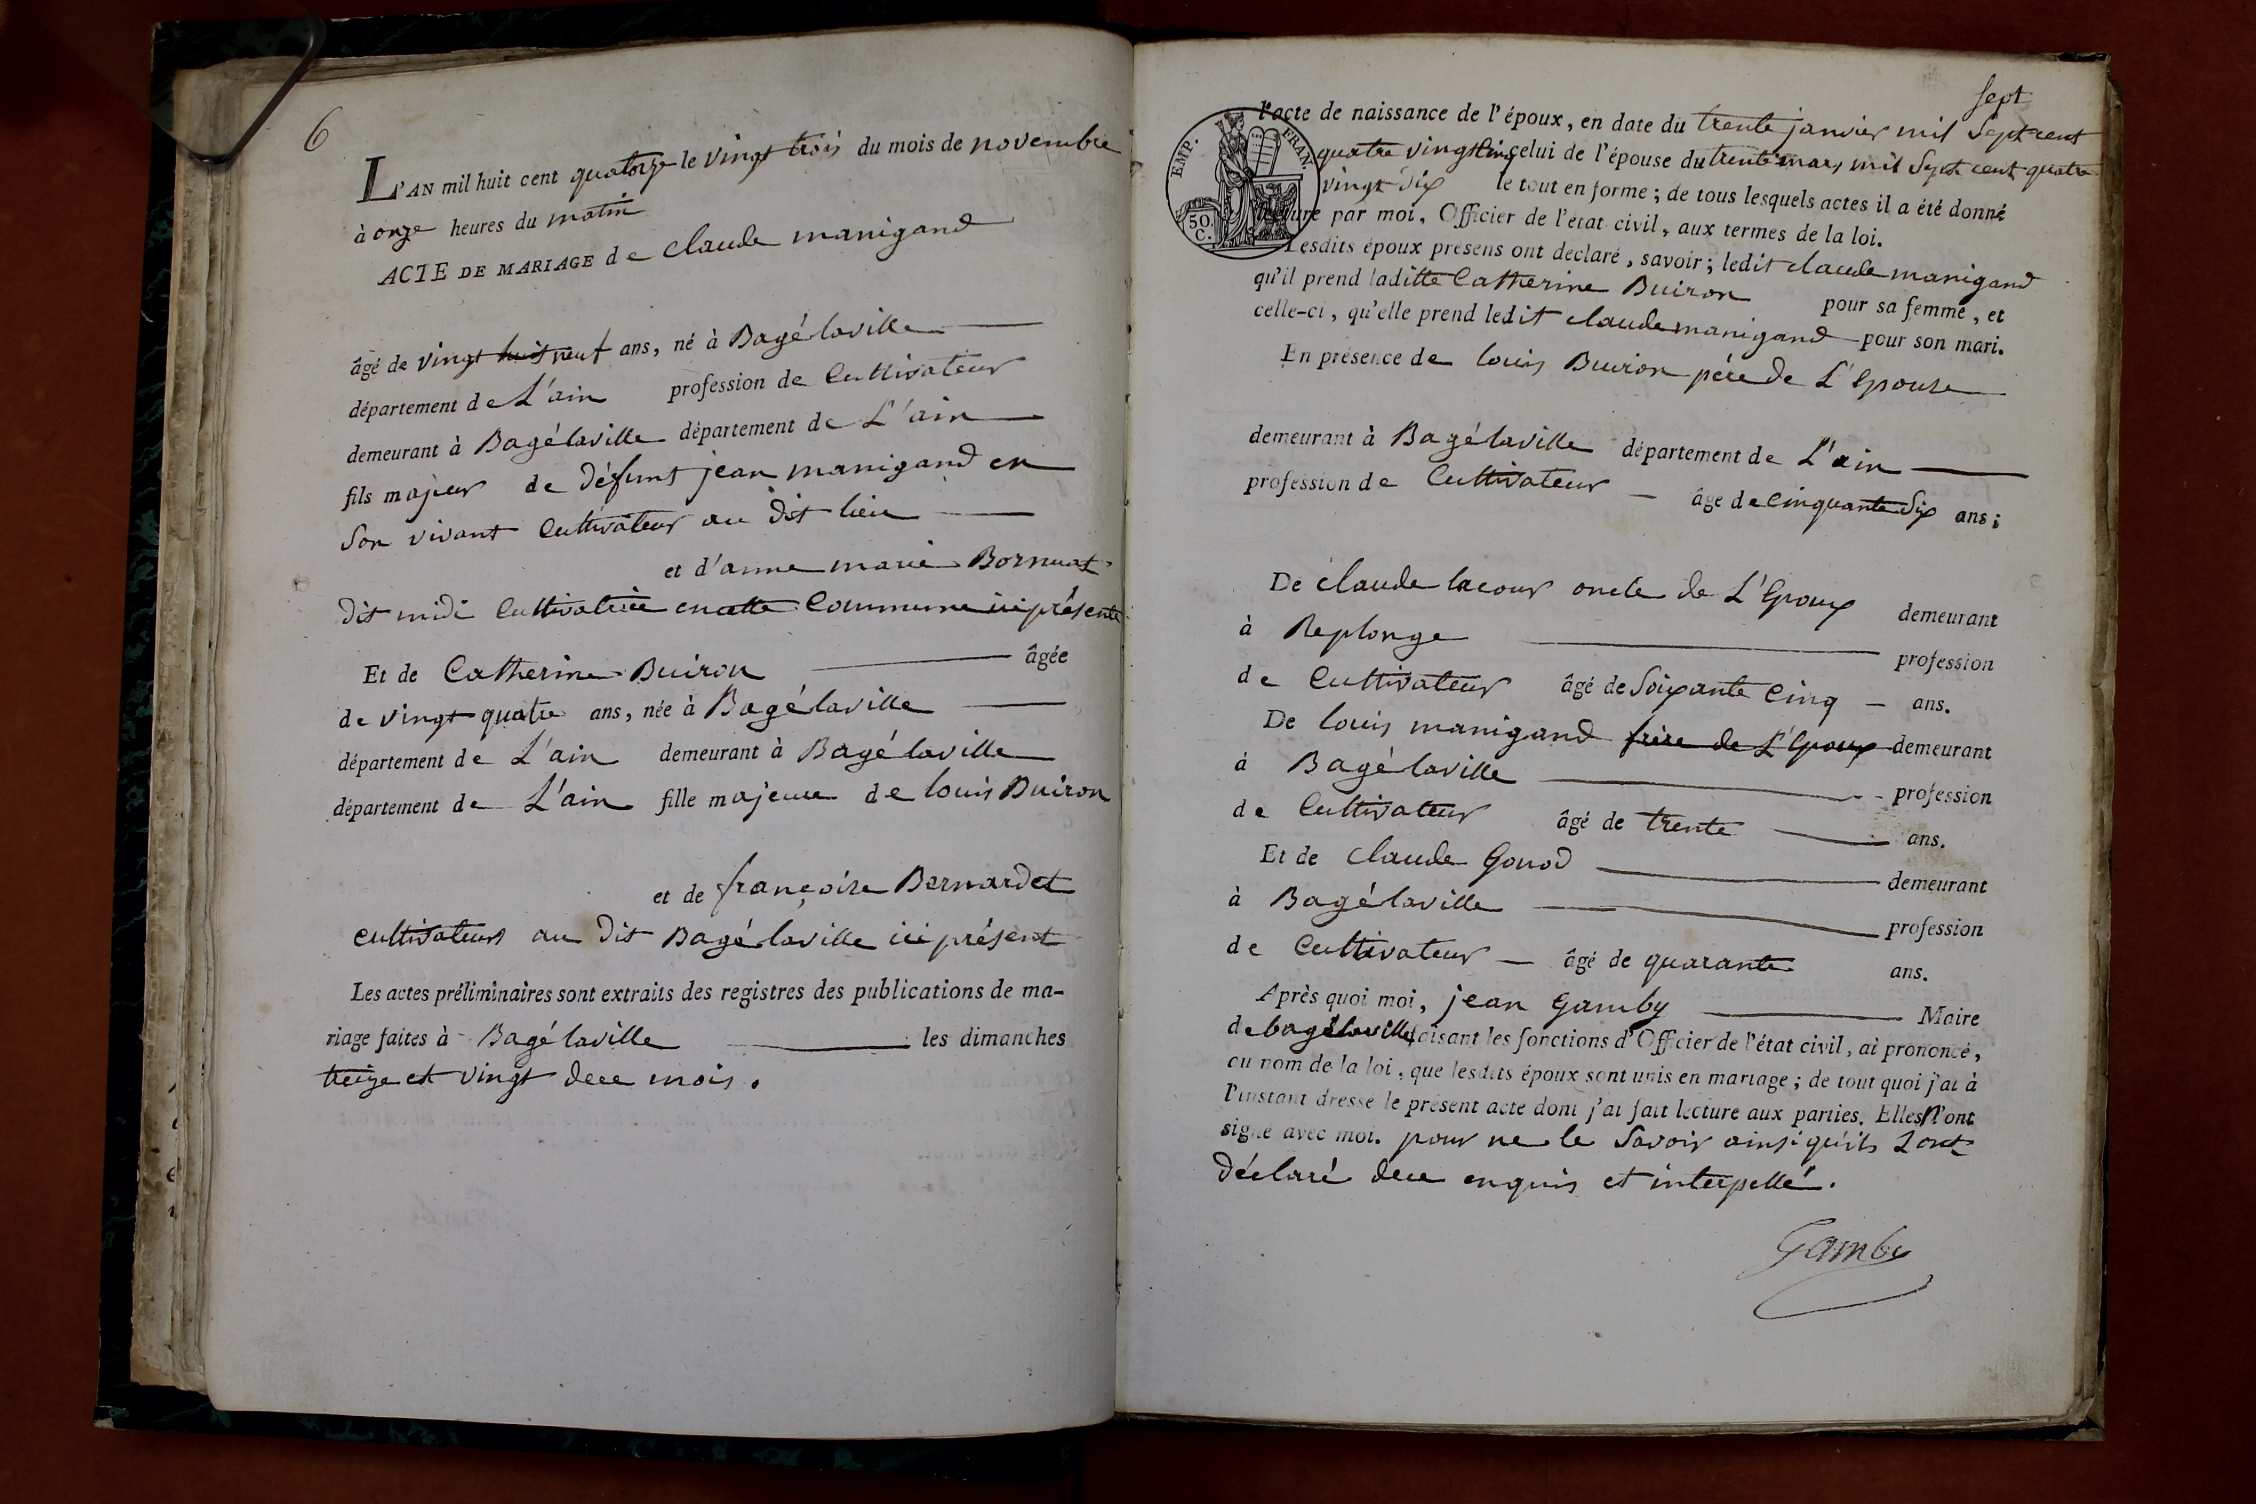 6
L'AN mil huit cent quatorze le vingt trois du mois de novembre
à onze heures du matin
ACTE DE MARIAGE de claude manigand
âgé de vingt huit neuf ans, né à Bagé laville
département de L'ain profession de Cultivateur
demeurant à Bagé laville département de L'ain
fils majeur de défunt jean manigand en
son vivant Cultivateur au dit lieu
et d'anne marie Bornuat
dit midi Cultivatrice en cette Commune ici présente
Et de Catherine Buiron âgée
de vingt quatre ans, née à Bagé laville
département de L'ain demeurant à Bagé laville
département de L'ain fille majeure de louis Buiron
et de françoise Bernardet
cultivateurs au dit Bagé laville ici présent
Les actes préliminaires sont extraits des registres des publications de ma-
riage faites à Bagé laville les dimanches
treize et vingt dece mois.
sept
l'acte de naissance de l'époux, en date du trente janvier mil sept cent
quatre vingt cinq celui de l'épouse du trente mars mil sept cent quatre
vingt dix le tout en forme ; de tous lesquels actes il a été donné
lecture par moi, Officier de l'état civil, aux termes de la loi.
EMP. FRAN.
50 C.
Lesdits époux présens ont déclaré, savoir ; ledit claude manigand
qu'il prend laditte Catherine Buiron pour sa femme, et
celle-ci, qu'elle prend ledit claude manigand pour son mari.
En présence de louis Buiron père de L'Epouse
demeurant à Bagé laville département de L'ain
profession de Cultivateur âge de cinquante six ans ;
De claude lacour oncle de L'Epoux demeurant
à Replonge profession
de Cultivateur âgé de soixante cinq ans.
De louis manigand frère de L'Epoux demeurant
à Bagé laville profession
de Cultivateur âgé de trente ans.
Et de claude Gonod demeurant
à Bagé laville profession
de Cultivateur âgé de quarante ans.
Après quoi moi, jean Gamby Maire
de bagé laville faisant les fonctions d'Officier de l'état civil, ai prononcé,
au nom de la loi, que lesdits époux sont unis en mariage ; de tout quoi j'ai à
l'instant dressé le présent acte dont j'ai fait lecture aux parties. Elles n'ont
signé avec moi. pour ne le savoir ainsi qu'ils L'ont
déclaré dece enquis et interpellé.
Gamby